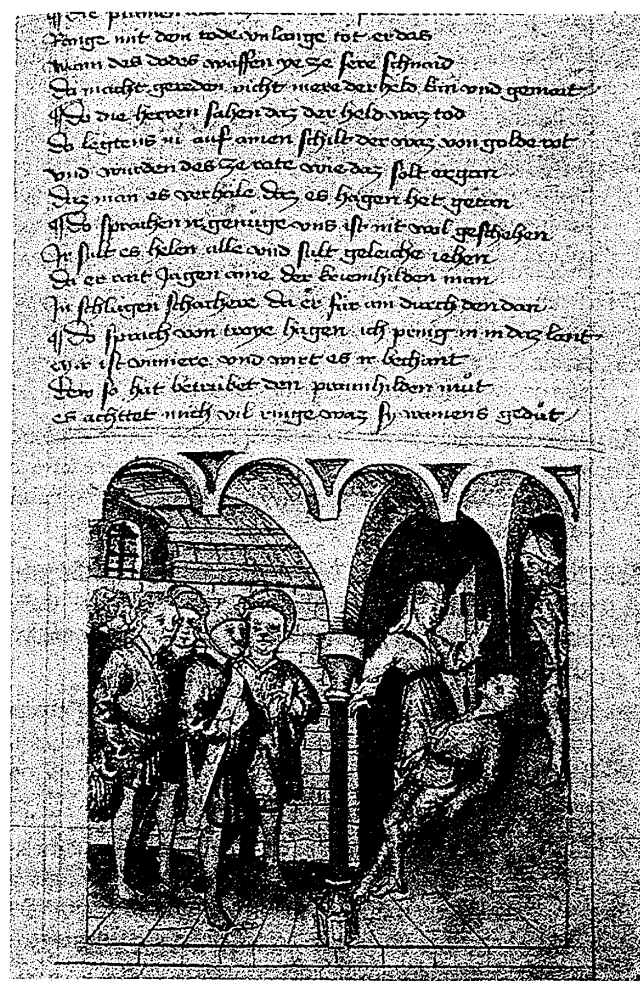 Die plumen
Range mit dem tode vnlange tet er das
wann des dodes waffen ye ze sere schnaid
Da macht gereden nicht mere der held kün vnd gemait
¶ Do die herren sahen daz der held waz tod
So legtens in auf ainen schilt der waz von golde rot
vnd wurden des ze rate wie daz solt ergan
Daz man es verhäle daz es hagen het getan
¶ Do sprachen ir genüge vns ist nit wal geschehen
Ir sült es helen alle vnd sült geleiche iehen
Da er rait Jagen aine der kriemhilden man
In schlugen schachere da er für ain durch den dan
¶ Do sprach von troye hagen ich pring in in daz lant
mir ist vnmere vnd wirt es ir bechant
Dew so hat betrübet den praunhilden müt
es achttet mich vil ringe waz sy wainens gedüt